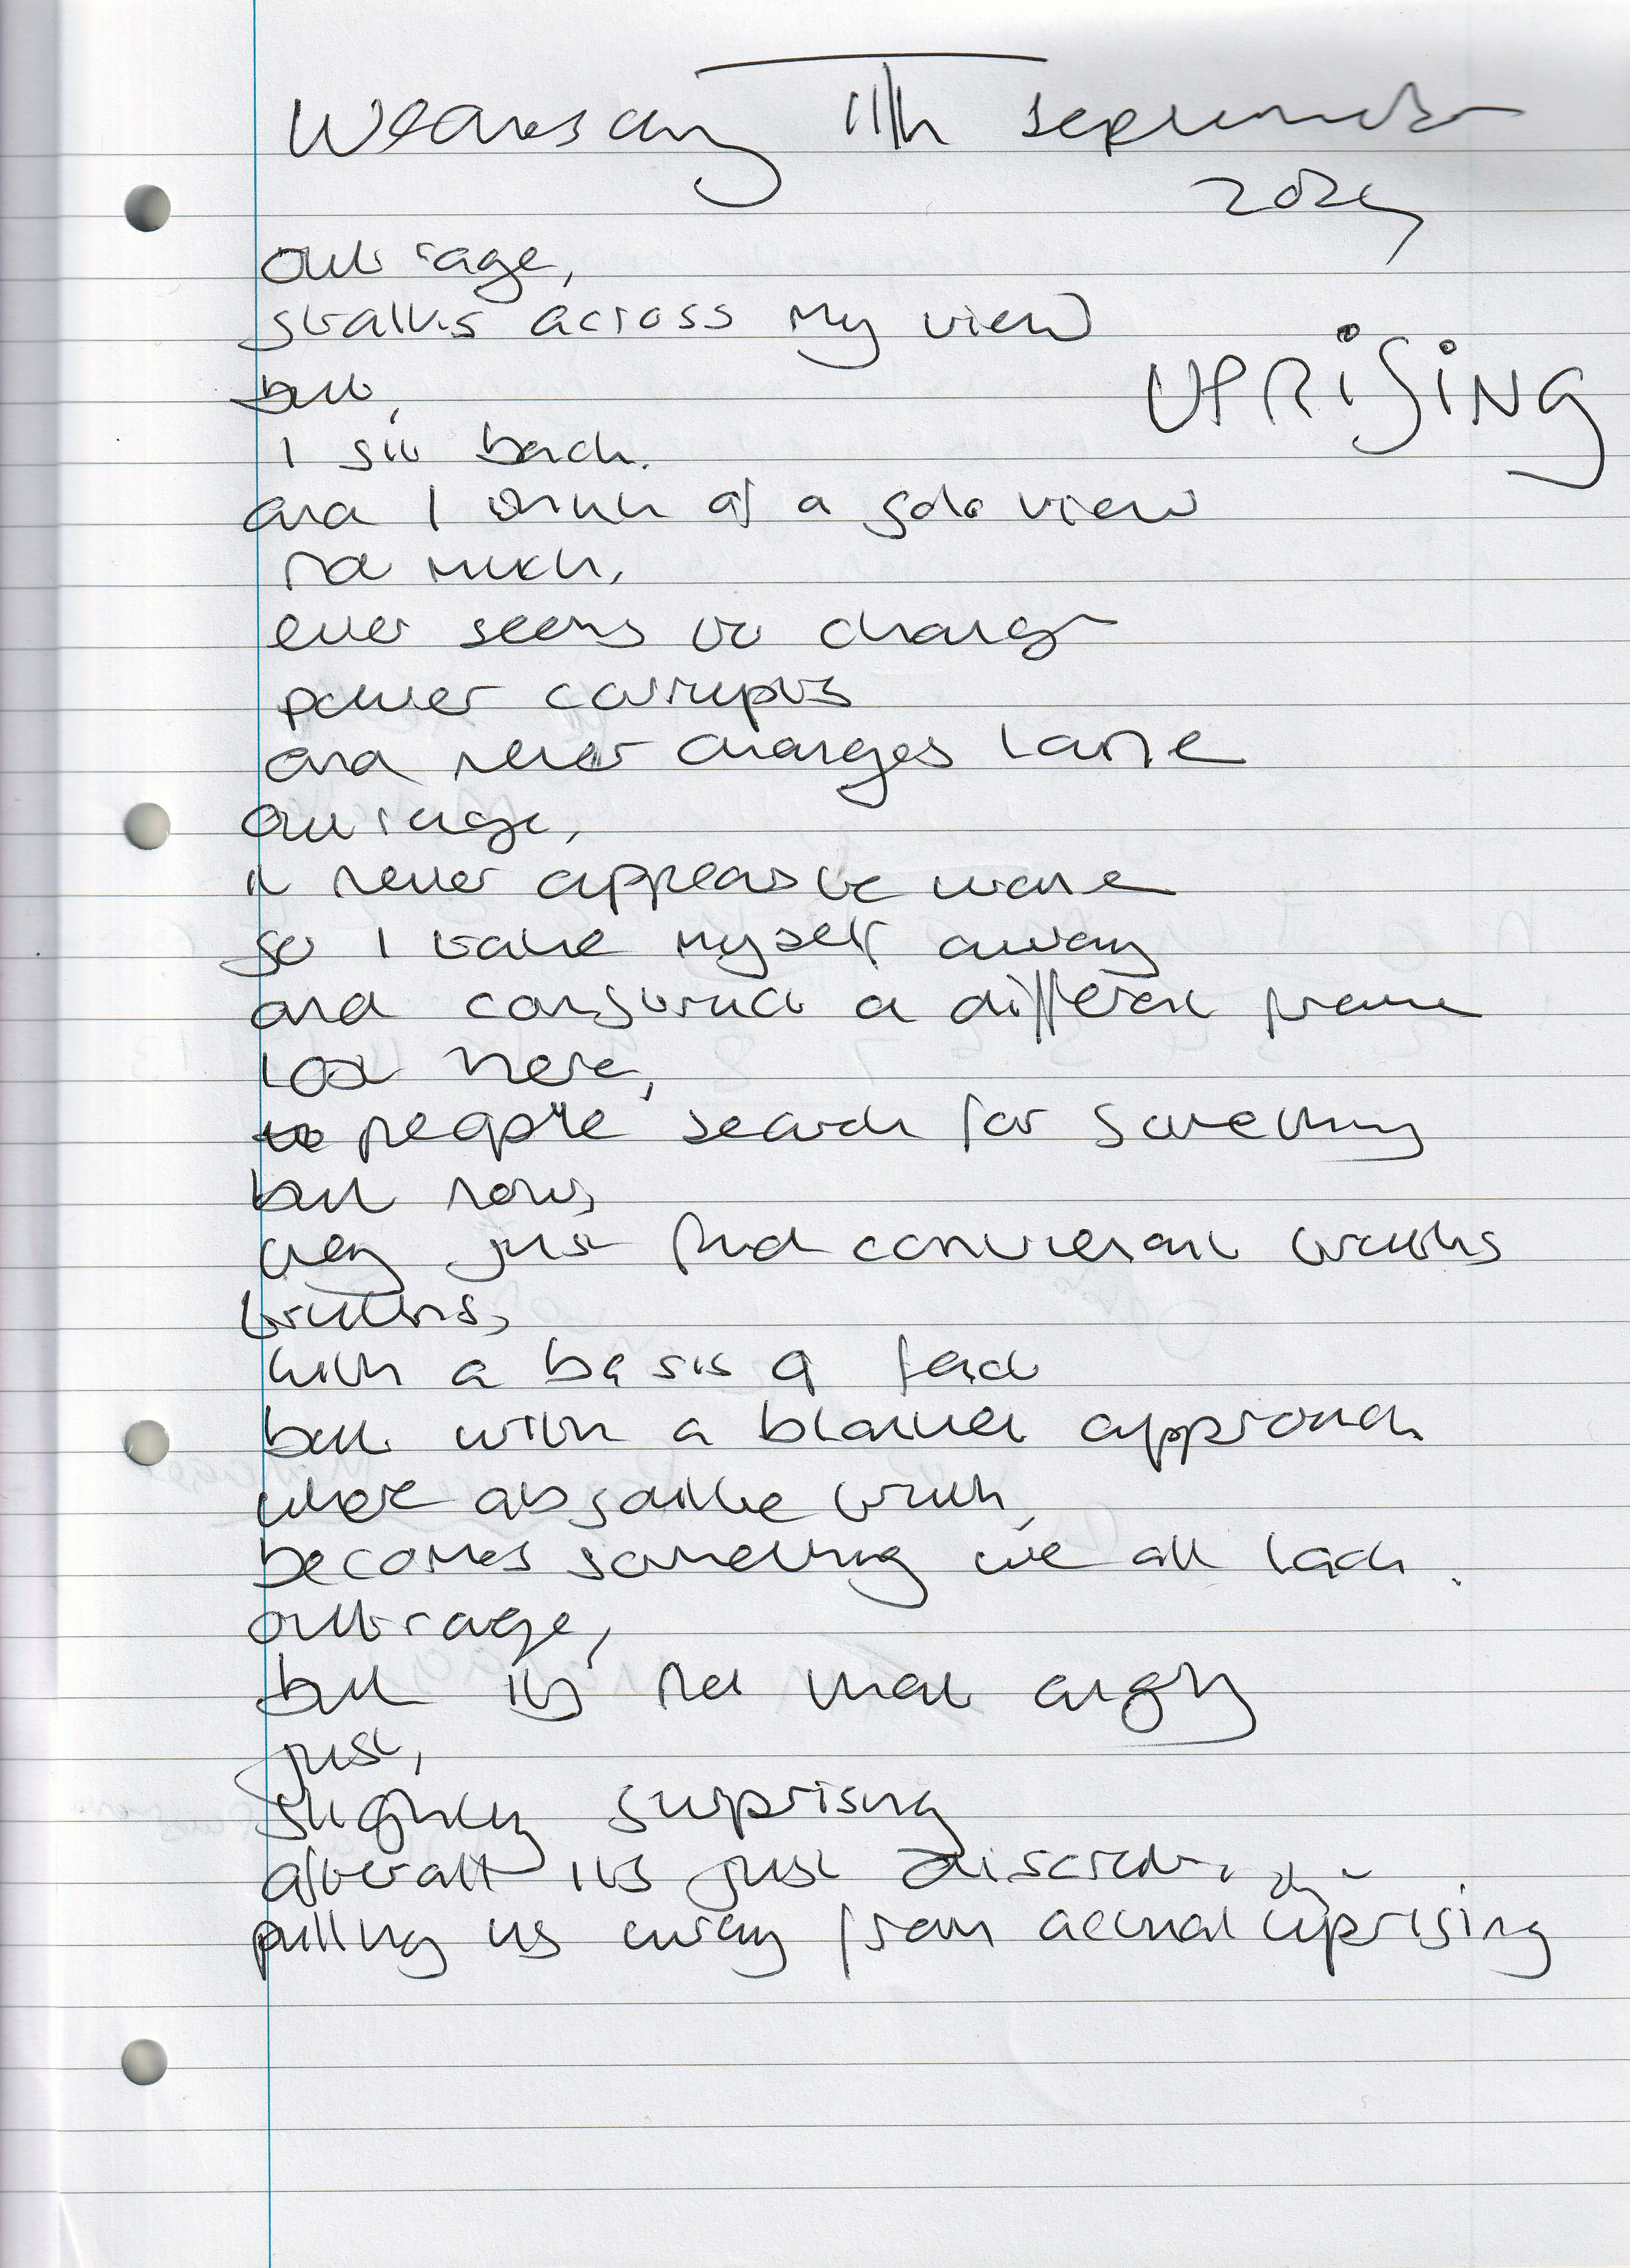 Wednesday 11th September
2024
outrage,
stalks across my view
UPRISING
but,
I sit back.
and I think of a solo view
not much,
ever seems to change
power corrupts
and never changes lane
outrage,
it never appears to wane
so I take myself away
and construct a different frame
lost here,
people search for something
but now,
they just find convenient truths
truths,
with a basis of fact
but with a blanket approach
where absolute truth,
becomes something we all lack.
outrage,
but its not that angry
just,
slightly surprising
after all its just discreetly
pulling us away from actual uprising